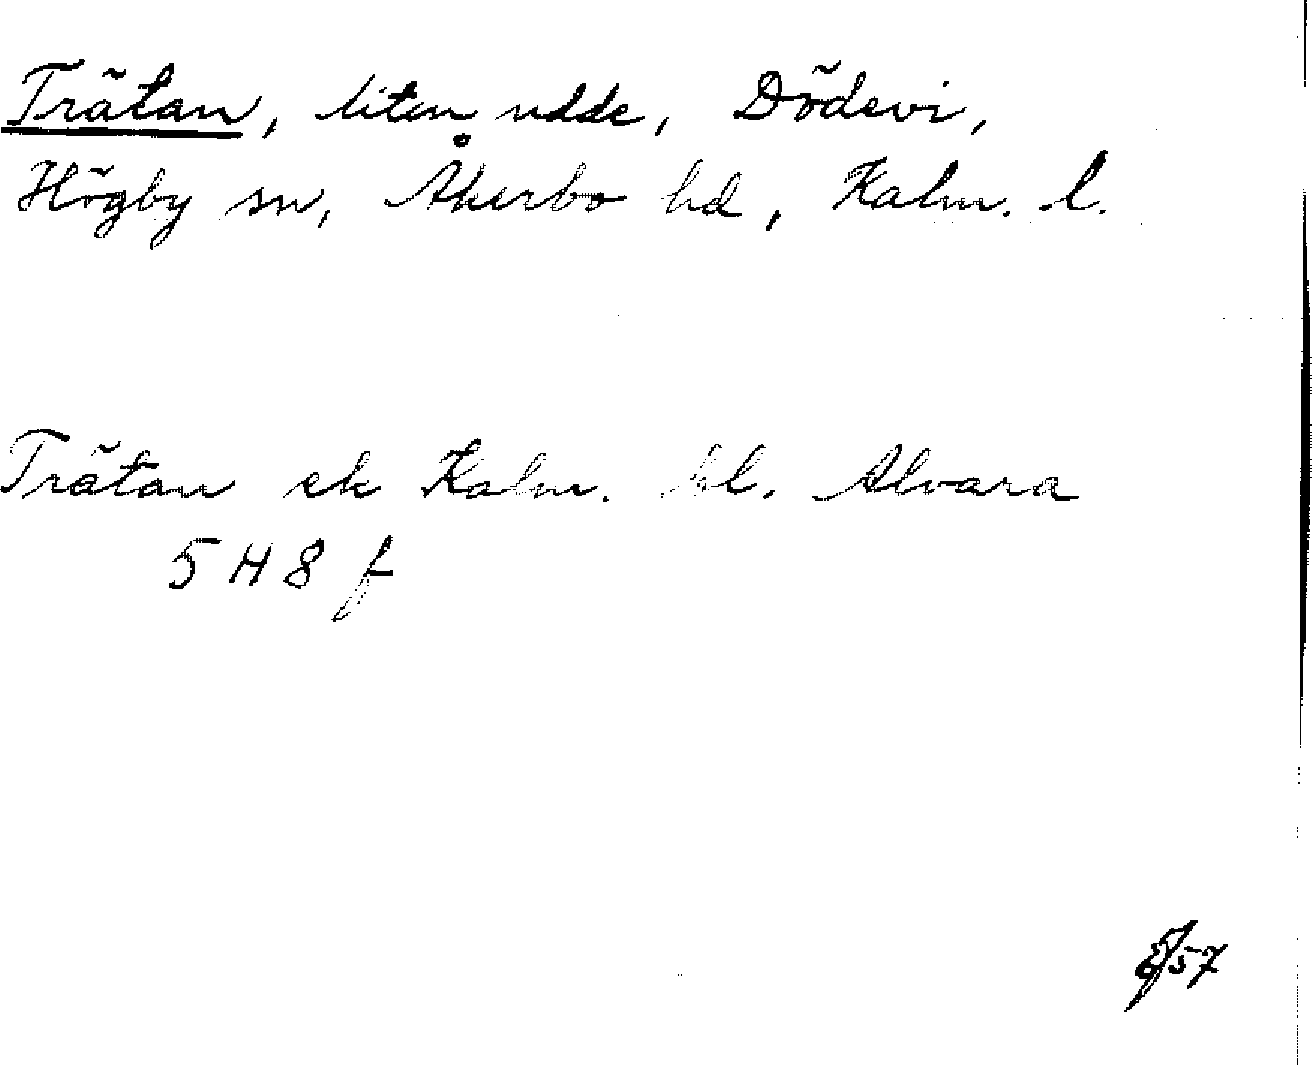 Trätan, liten udde, Dödevi,
Högby sn, Åkerbo hd, Kalm. l.
Trätan ek Kalm. bl. Alvara
5 H 8 f
57